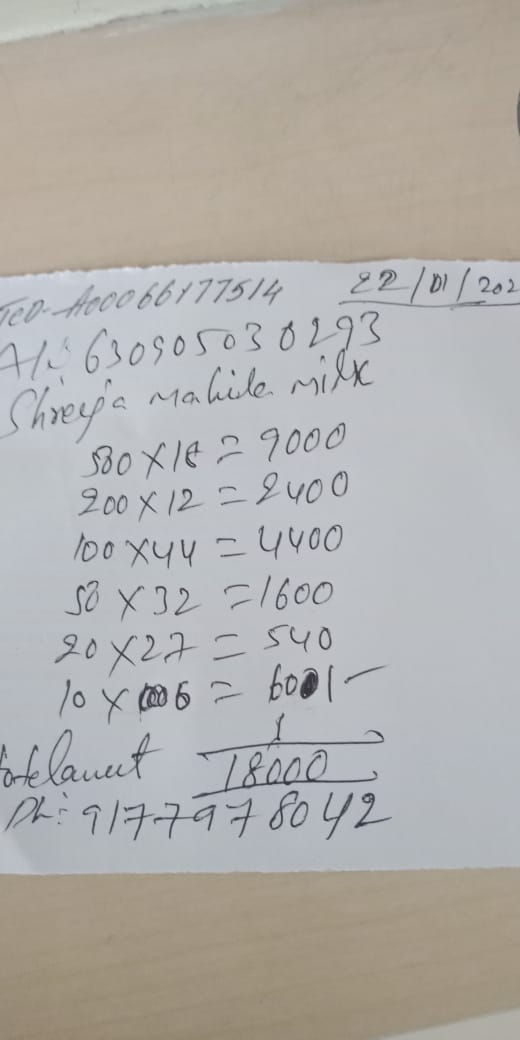 TCD-A00066177514 22/01/202
A/N 630905030293
Shreeja Mahila milk
500 X 18 = 9000
200 X 12 = 2400
100 X 44 = 4400
50 X 32 = 1600
20 X 27 = 540
10 X 6 = 60/-
18000
Ph: 9177978042